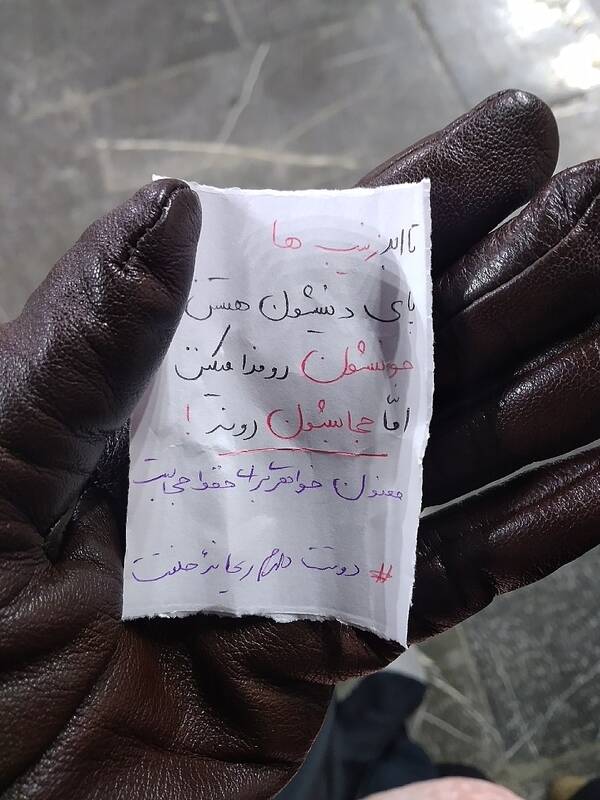 تا ابد زینب ها
پای دینشون هستن
خونشون رو فدا میکنن
امّا حجابشون رو نه!
ممنون خواهر برای حفظ حجابت
# دوستت دارم ریحانهٔ خلقت